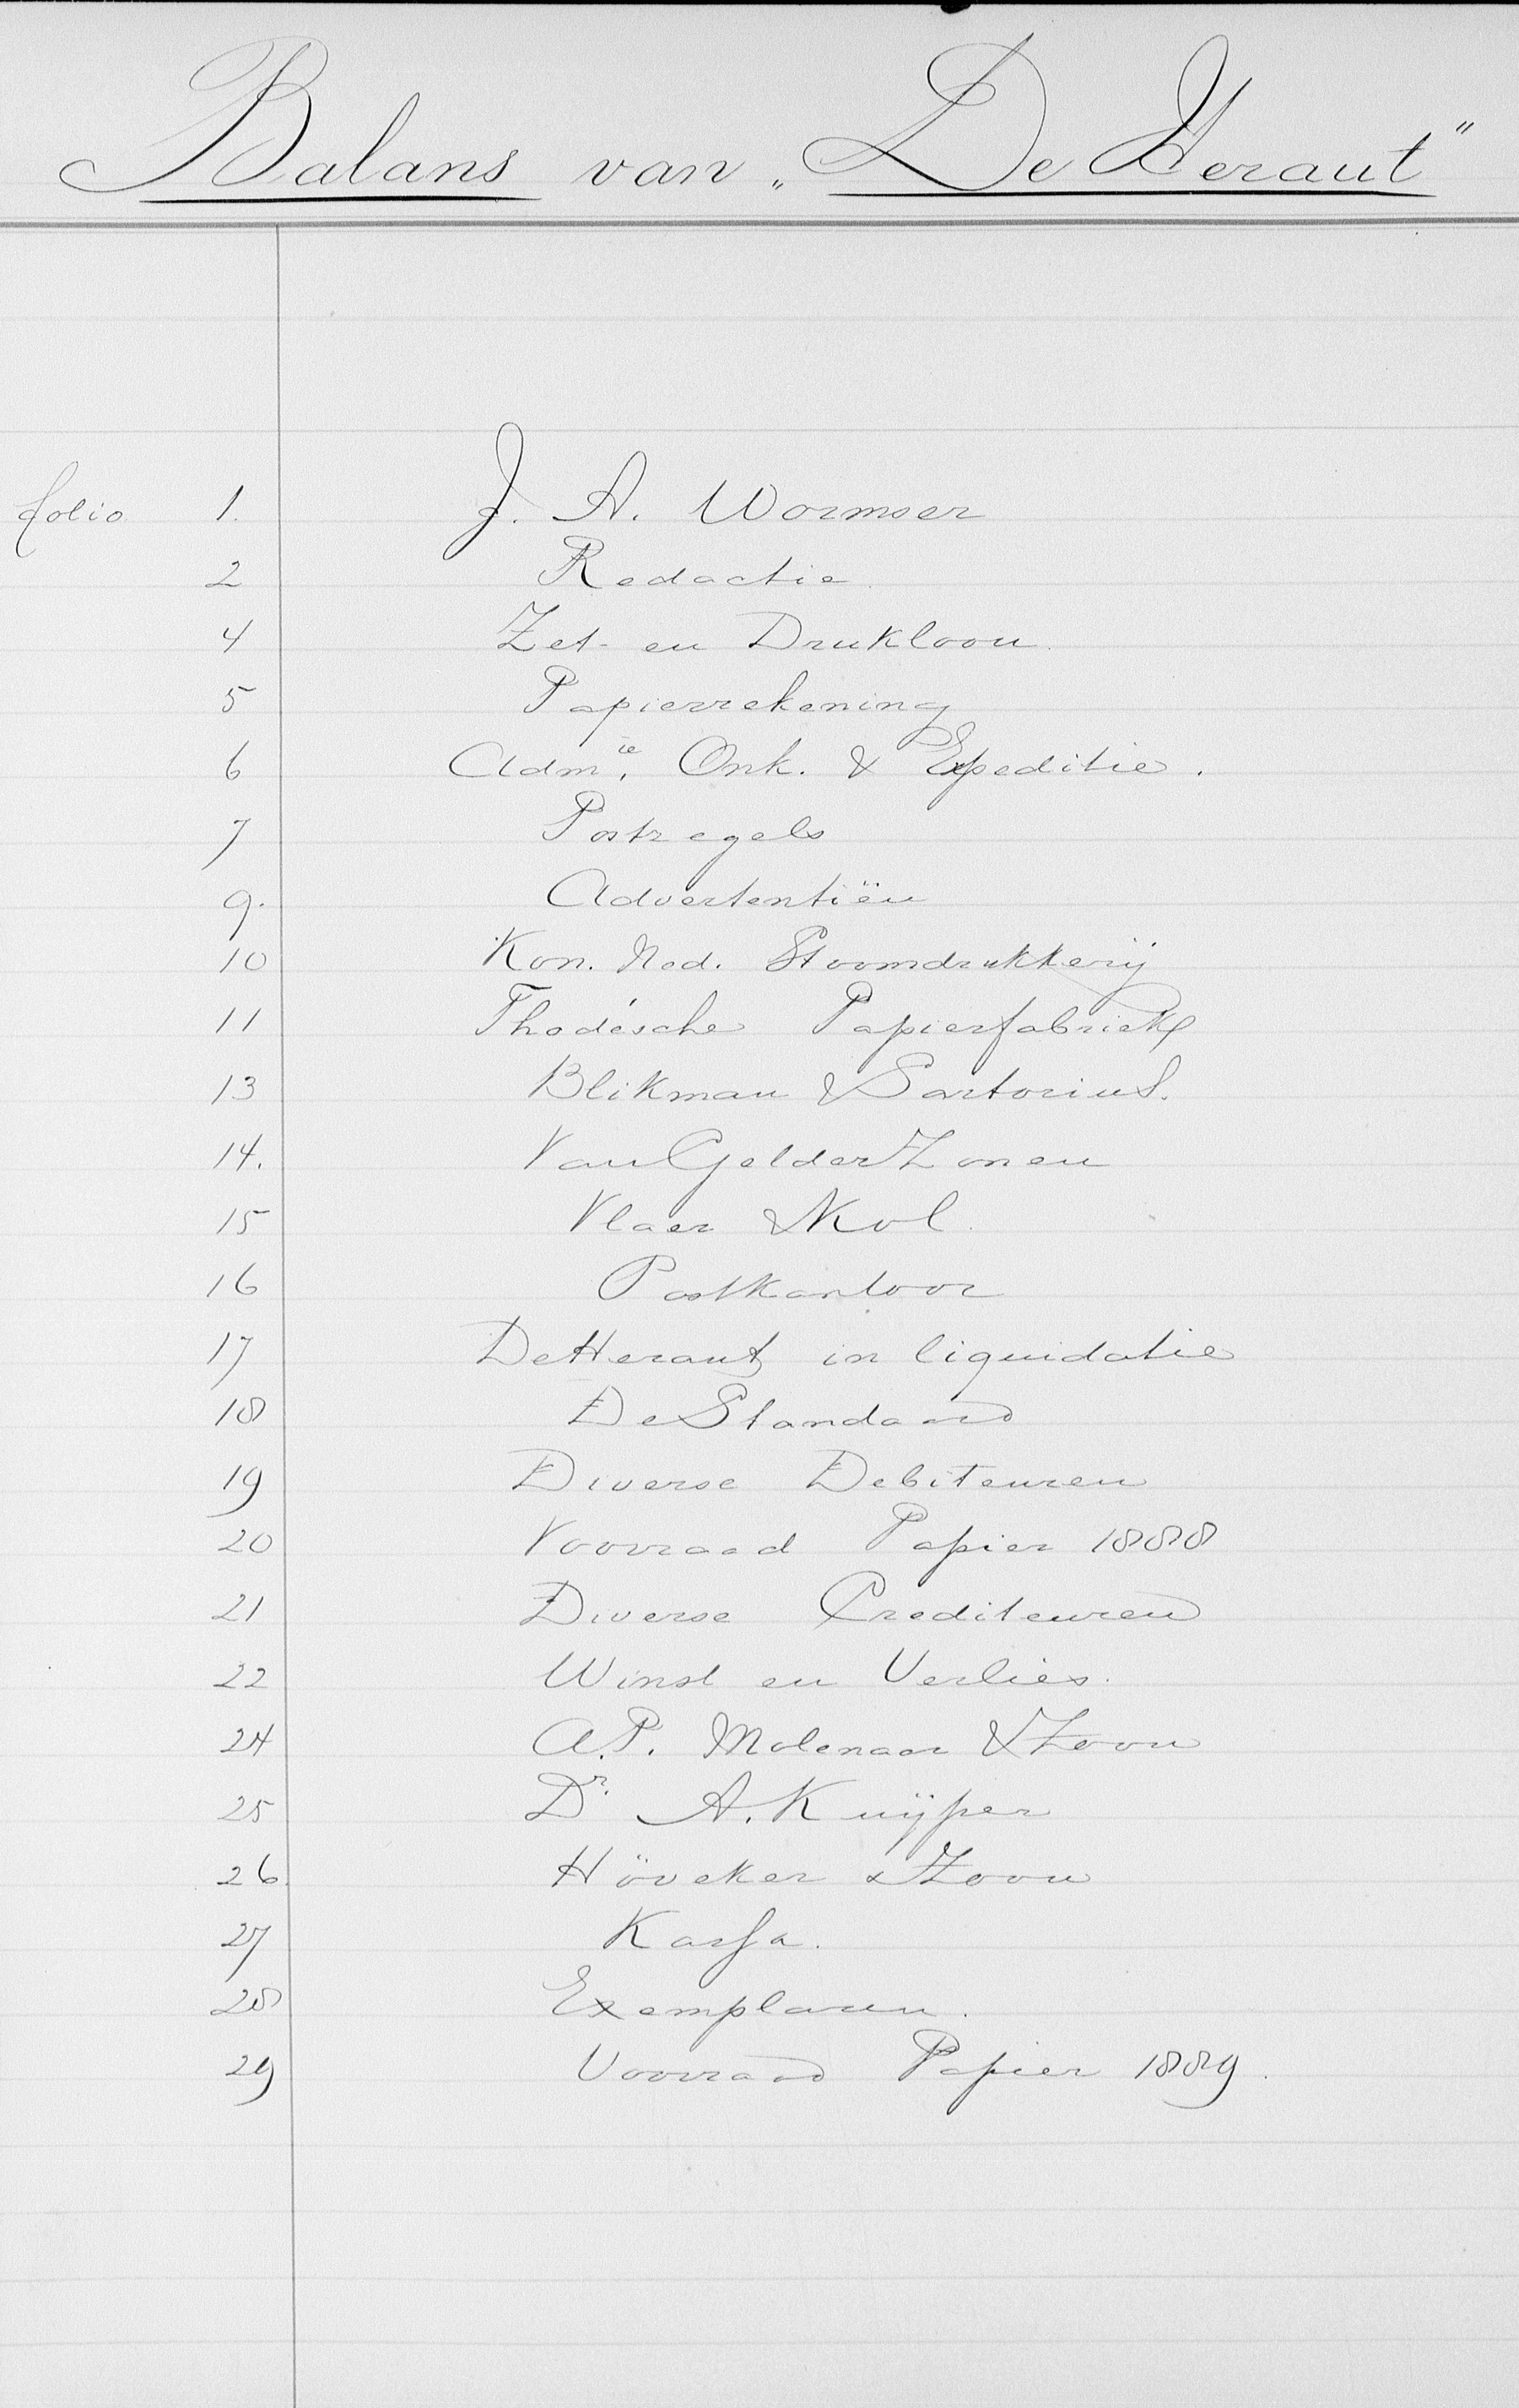 Balans van „De Heraut"
folio 1. J. A. Wormser
2 Redactie.
4 Zet- en Drukloon.
5 Papierrekening
6 Admie. Onk. & Expeditie.
7 Postzegels
9. Advertentiën
10 Kon. Ned. Stoomdrukkerij
11 Thodésche Papierfabriek
13 Blikman & Sartorius.
14. Van Gelder Zonen
15 Vlaer & Kol.
16 Postkantoor
17 De Heraut in liquidatie
18 De Standaard
19 Diverse Debiteuren
20 Voorraad Papier 1888
21 Diverse Crediteuren
22 Winst en Verlies.
24 A.P. Molenaar & Zoon
25 Dr. A. Kuijper
26. Höveker & Zoon
27 Kassa.
28 Exemplaren.
29 Voorraad Papier 1889.